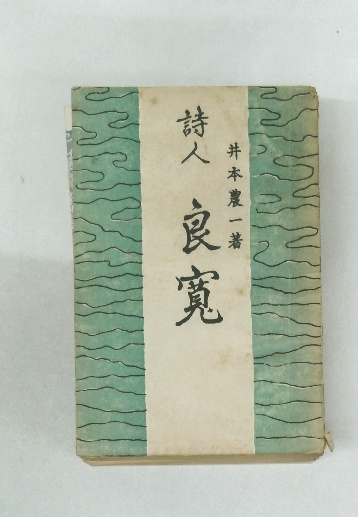 井本農一著
詩人
良寛